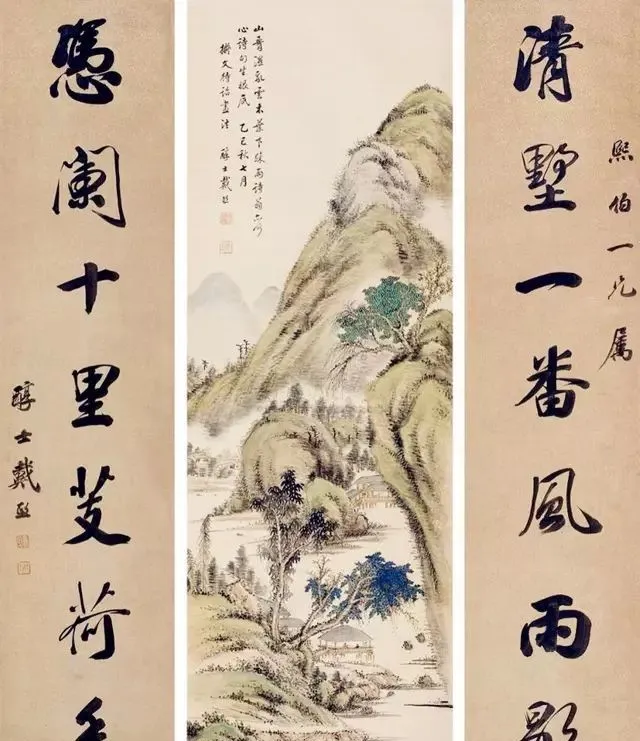 熙伯一兄屬
清墅一番風雨
山溼亂雲木葉下疎雨詩翁
心詩句生眼底 乙巳秋七月
擬文待詔畫法 醇士戴熙
憑闌十里芰荷
醇士戴熙